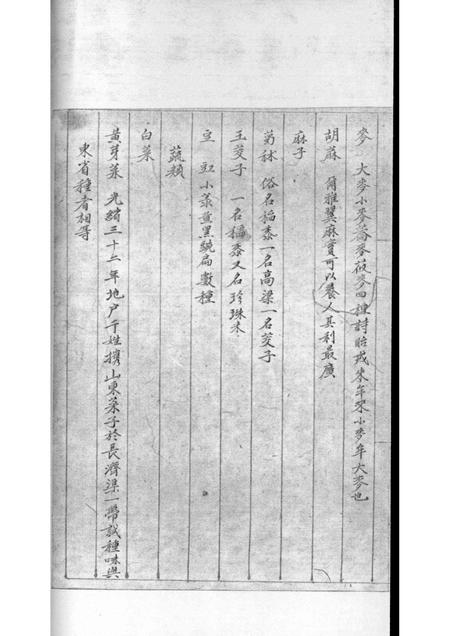 麥 大麥小麥蕎麥莜麥四種詩貽我來牟來小麥牟大麥也
胡麻 爾雅翼麻實可以養人其利最廣
麻子
蜀秫 俗名稻黍一名高梁一名茭子
玉茭子 一名稻黍又名珍珠米
豆 紅小菉黃黑豌扁數種
蔬類
白菜
黃芽菜 光緒三十二年地户于姓攜山東菜子於長濟渠一帶試種味與
東省種者相等